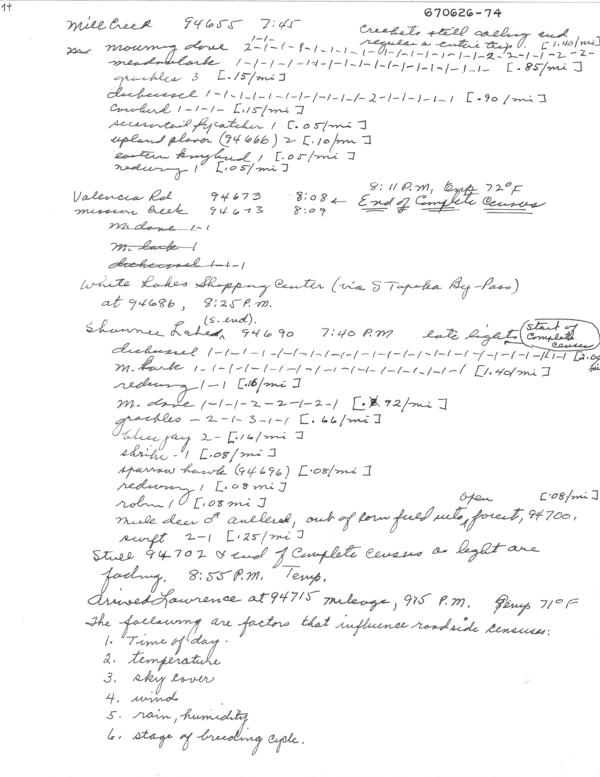 14
670626-74
Mill Creek 94655 7:45 Crickets still calling and
regular on entire trip. [1.40/mi]
1-1-
mourning dove 2-1-1-1-1-1-1-1-1-1-1-1-1-1-1-1-2-2-1-1-2-2-
meadowlark 1-1-1-1-1-1-1-1-1-1-1-1-1-1-1-1-1 [.85/mi]
grackles 3 [.15/mi]
dickcissel 1-1-1-1-1-1-1-1-1-1-2-1-1-1-1-1 [.90/mi]
cowbird 1-1-1- [.15/mi]
scissortail flycatcher 1 [.05/mi]
upland plover (94666) 2 [.10/mi]
eastern kingbird 1 [.05/mi]
redwing 1 [.05/mi]
8:11 P.M, temp 72°F
Valencia Rd 94673 8:08 ← End of Complete Census
Mission Creek 94673 8:09
M. dove 1-1
M. lark 1
dickcissel 1-1-1
White Lakes Shopping Center (via S Topeka By-Pass)
at 94686, 8:25 P.M.
(s. end).
Shawnee Lake, 94690 7:40 P.M late lights Start of Complete Census
dickcissel 1-1-1-1-1-1-1-1-1-1-1-1-1-1-1-1-1-1-1-1-1-1-1-1
m. lark 1-1-1-1-1-1-1-1-1-1-1-1-1-1-1-1-1 [1.40/mi]
redwing 1-1 [.16/mi]
m. dove 1-1-1-2-2-1-2-1 [.92/mi]
grackles - 2-1-3-1-1 [.66/mi]
blue jay 2- [.16/mi]
shrike - 1 [.08/mi]
sparrow hawk (94696) [.08/mi]
redwing 1 [.08 mi]
robin 1 [.08 mi] open [.08/mi]
mule deer ♂ antlered, out of corn field into forest, 94700.
swift 2-1 [.25/mi]
Still 94702 & end of Complete census as light are
fading. 8:55 P.M. Temp.
Arrived Lawrence at 94715 mileage, 915 P.M. Temp 71°F
The following are factors that influence roadside censuses:
1. Time of day.
2. temperature
3. sky cover
4. wind
5. rain, humidity
6. stage of breeding cycle.